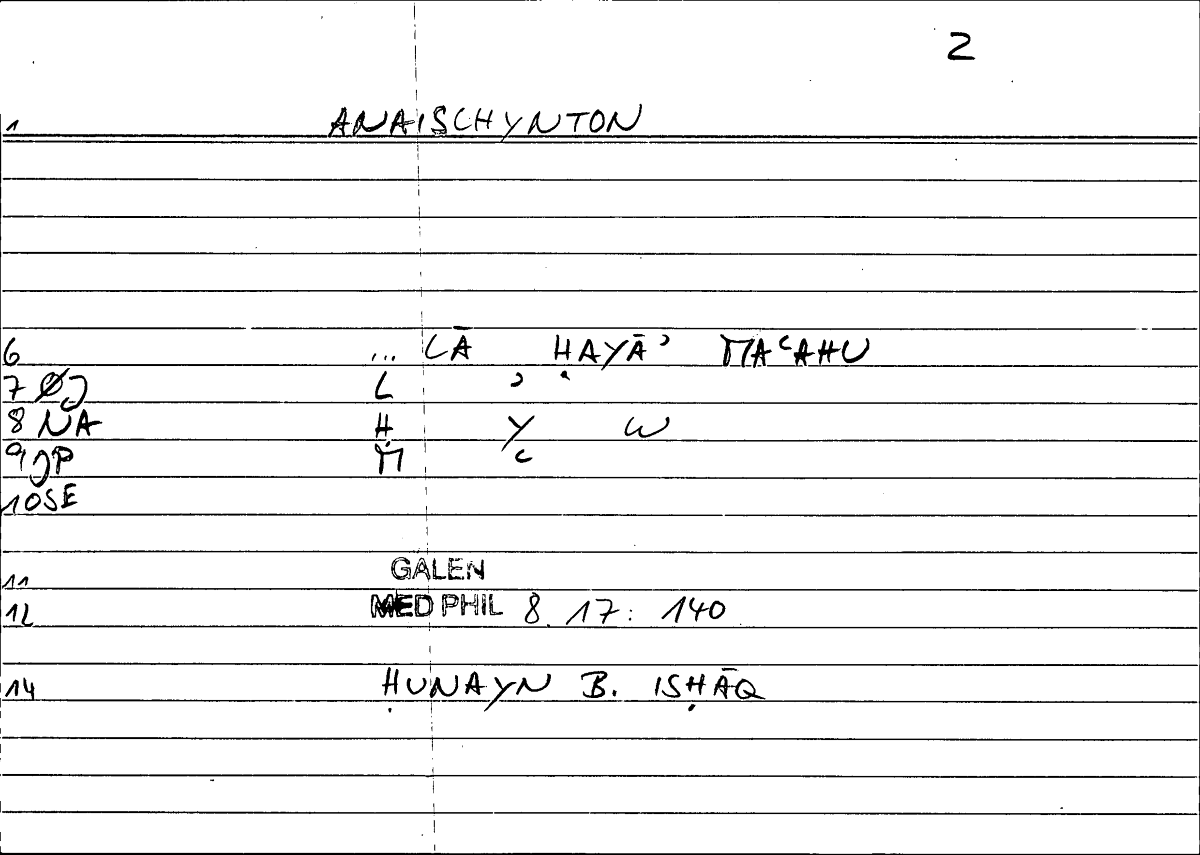 2
1 ANAISCHYNTON
6 ... LĀ ḤAYĀʾ MAʿAHU
7 ØJ L ʾ
8 NA Ḥ Y W
9 JP M ʿ
10 SE
11 GALEN
12 MED PHIL 8. 17: 140
14 ḤUNAYN B. ISḤĀQ